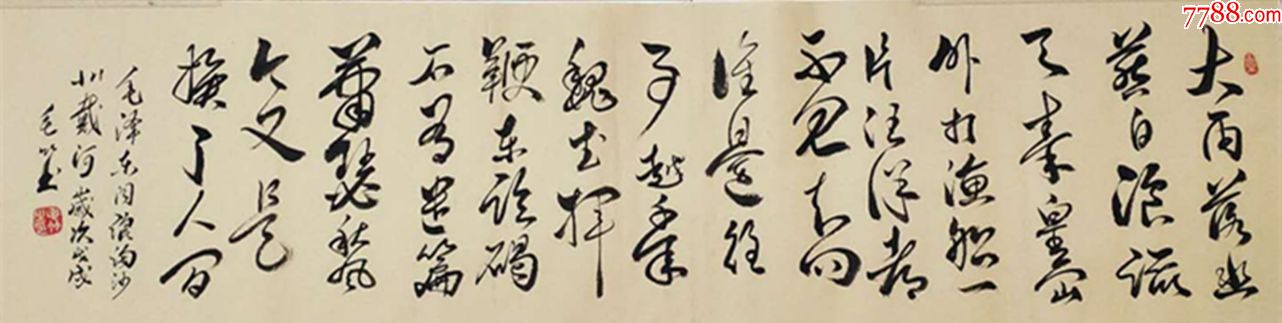 7788.com
大雨落幽
燕白浪滔
天秦皇島
外打渔船一
片汪洋都
不见知向
谁邊往
事越千年
魏武揮
鞭东临碣
石有遗篇
萧瑟秋风
今又是
换了人间
毛泽东词浪淘沙
北戴河 歲次戊戌